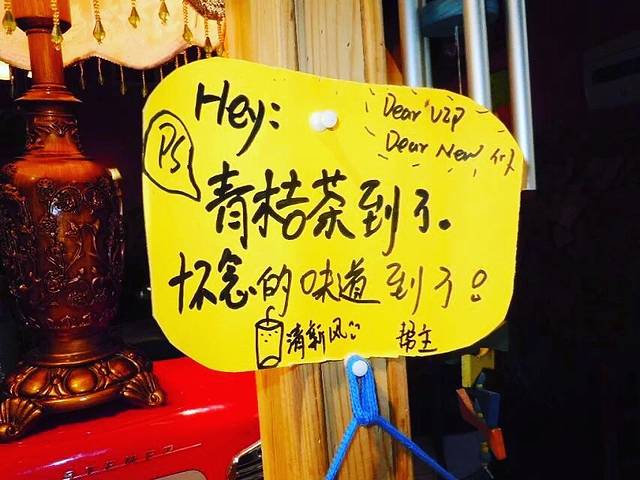 Hey:
Dear VIP
Dear New
PS
青桔茶到了。
怀念的味道到了。
清新风 帮主